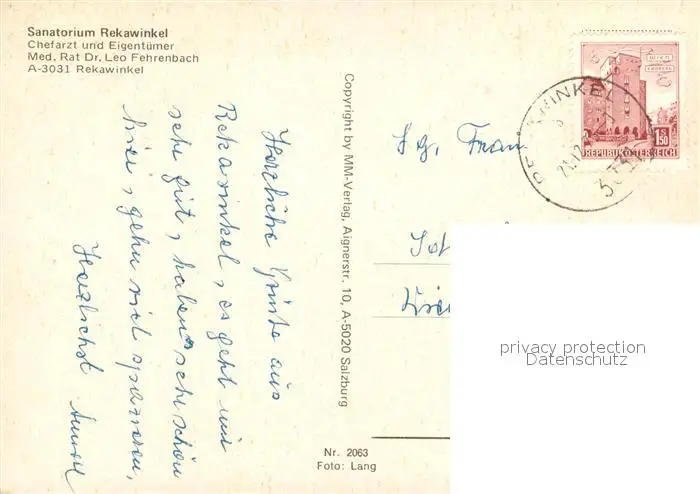 Sanatorium Rekawinkel
Chefarzt und Eigentümer
Med. Rat Dr. Leo Fehrenbach
A-3031 Rekawinkel
Herzliche Grüße aus
Rekawinkel, es geht mir
sehr gut, haben sehr schön
hier, gehn viel spazieren,
Herzlichst
Copyright by MM-Verlag, Aignerstr. 10, A-5020 Salzburg
Nr. 2063
Foto: Lang
REKAWINKEL
1S50
REPUBLIK ÖSTERREICH
Sg. Frau
privacy protection
Datenschutz